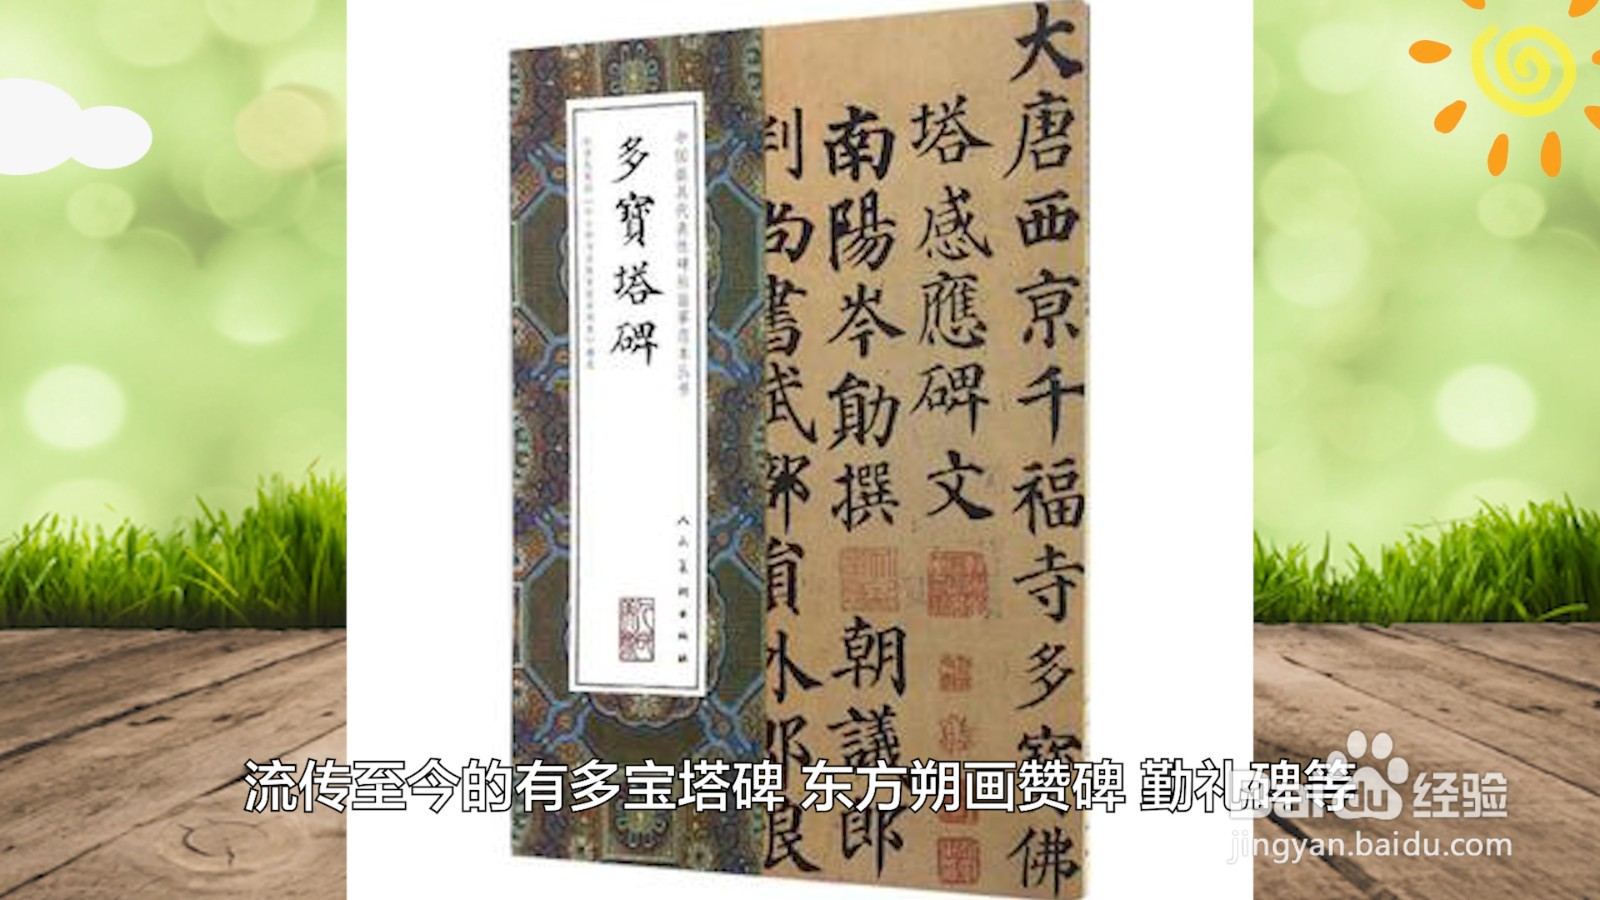 多寳塔碑
人民美術出版社
大唐西京千福寺多寳佛
塔感應碑文
南陽岑勛撰 朝議郎
判尚書武部員外郎
流传至今的有多宝塔碑 东方朔画赞碑 勤礼碑等
Baidu经验
jingyan.baidu.com